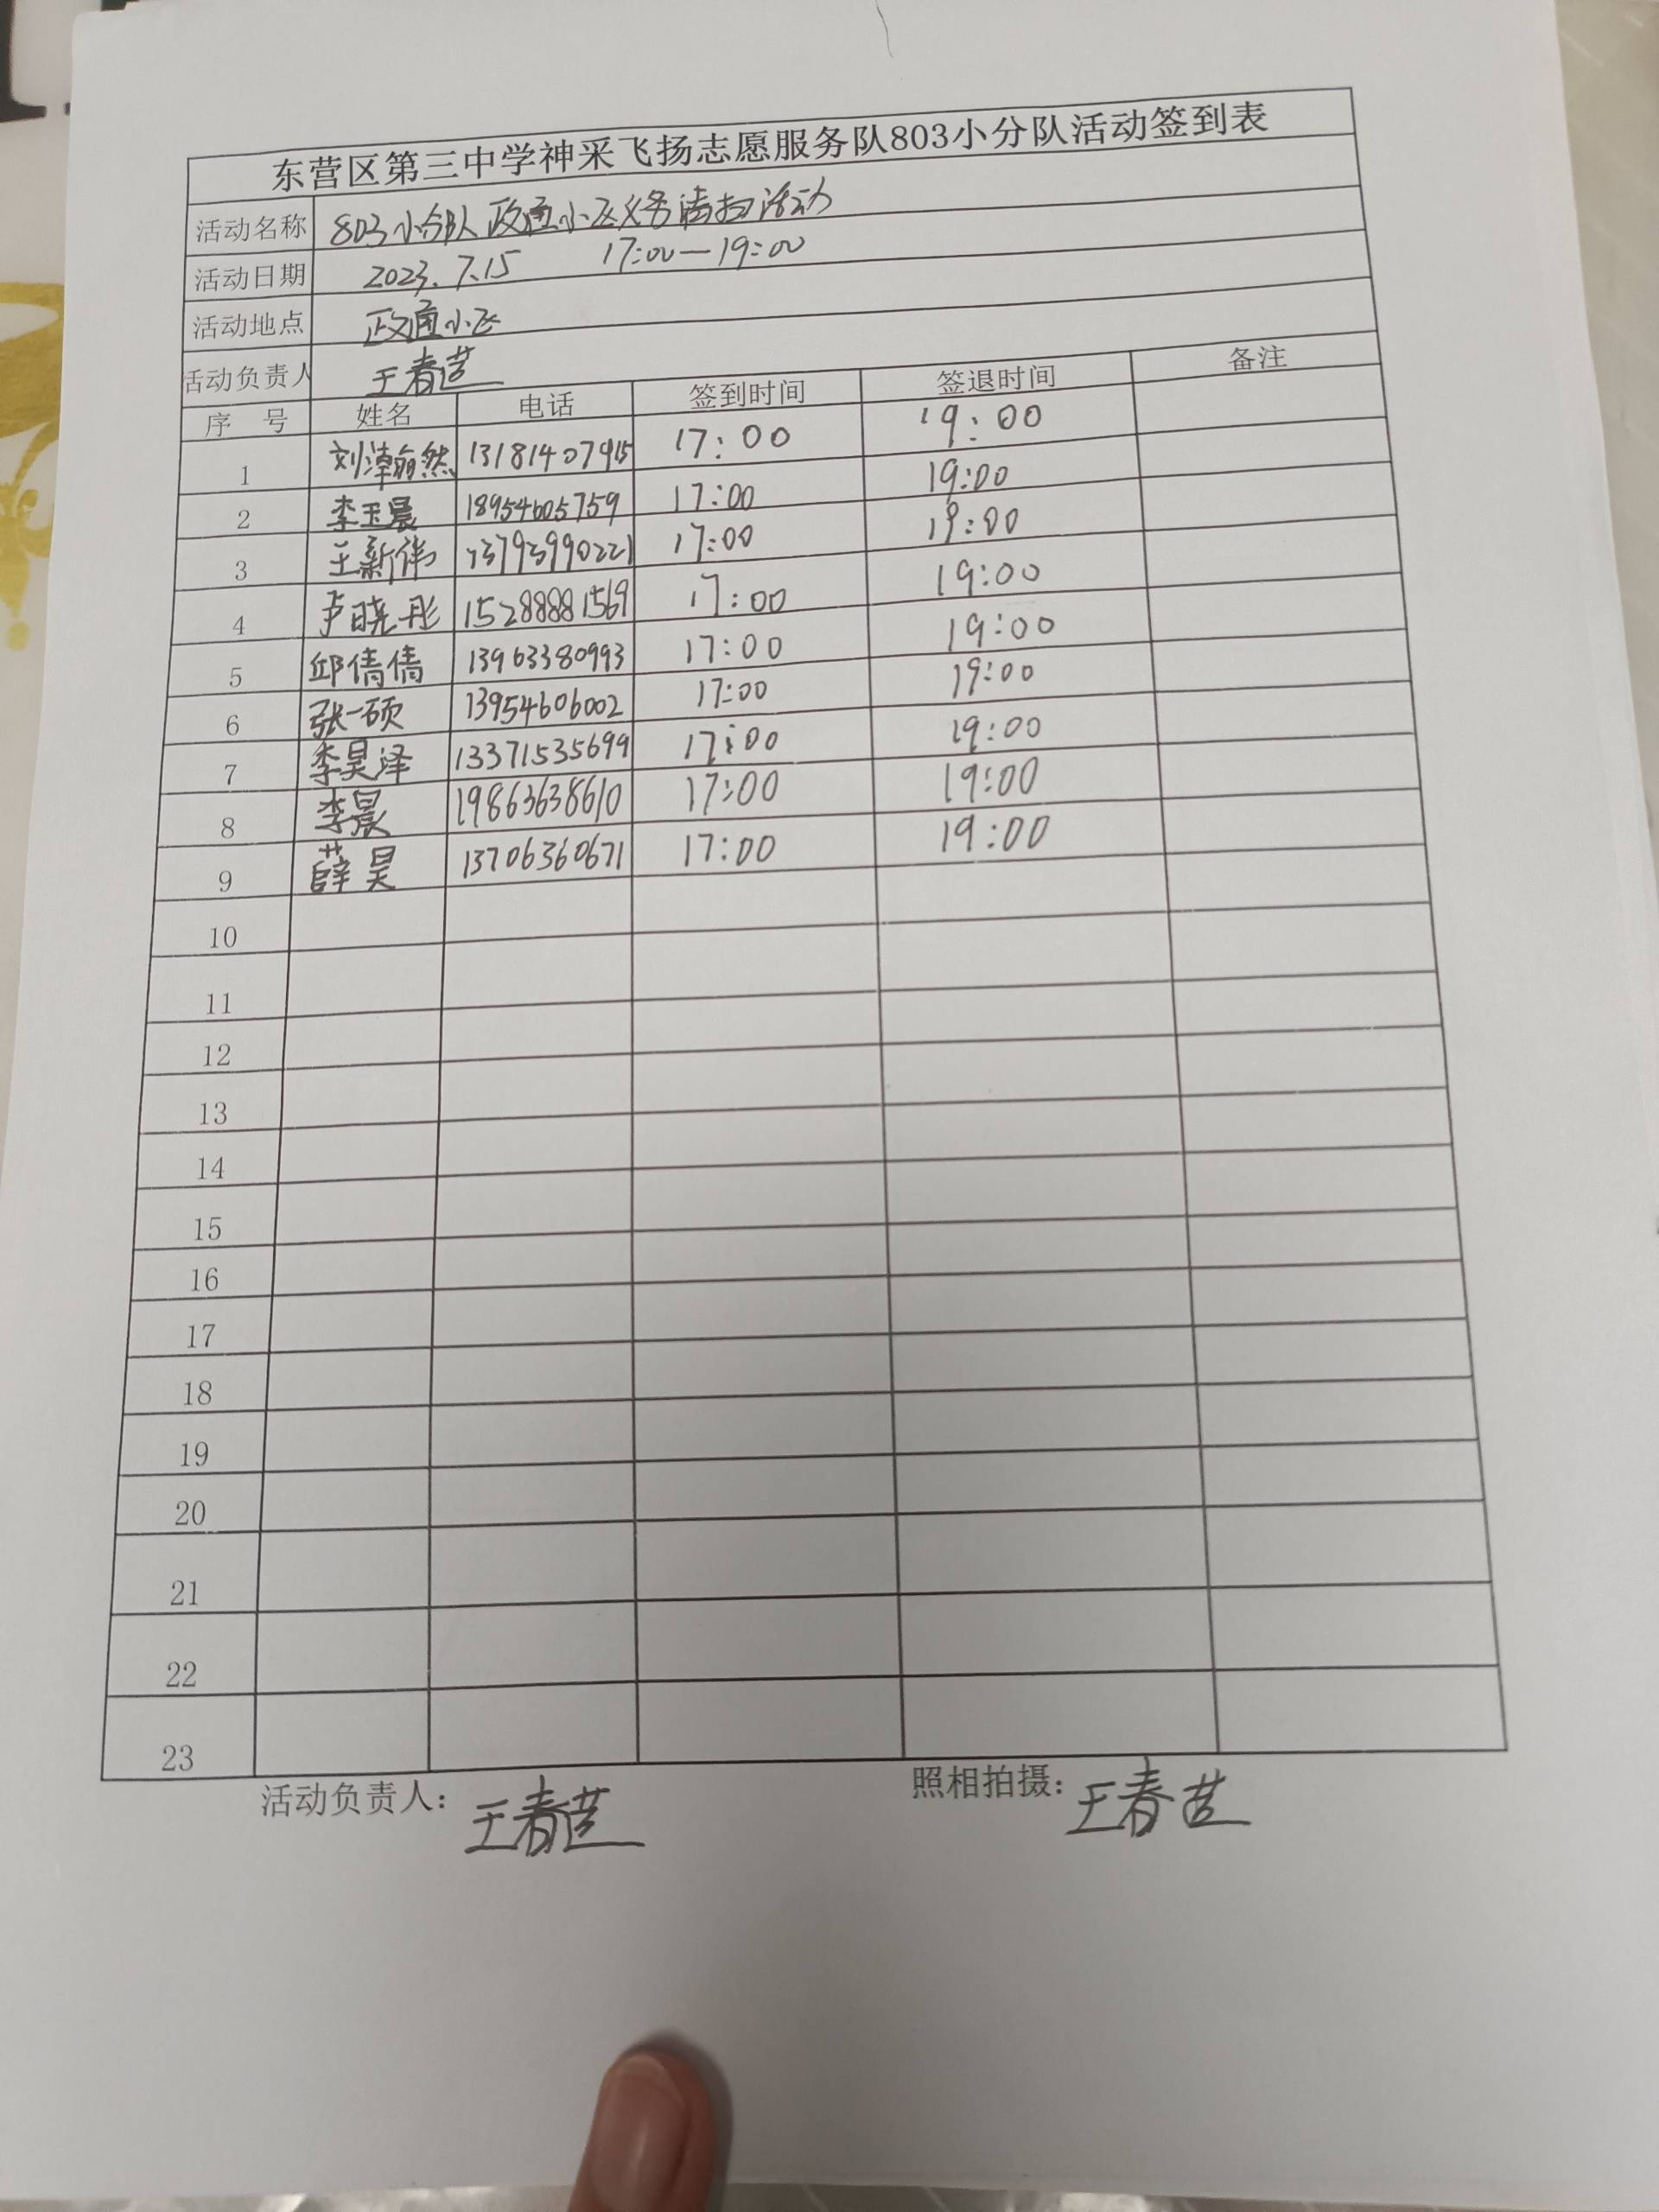 东营区第三中学神采飞扬志愿服务队803小分队活动签到表
活动名称 803小分队政通小区义务清扫活动
活动日期 2023.7.15 17:00—19:00
活动地点 政通小区
活动负责人 王春
序 号 姓名 电话 签到时间 签退时间 备注
1 刘瀚然 13181407915 17:00 19:00
2 李玉晨 18954605759 17:00 19:00
3 王新伟 13793990221 17:00 19:00
4 卢晓彤 15288881569 17:00 19:00
5 邱倩倩 13963380993 17:00 19:00
6 张一硕 13954606002 17:00 19:00
7 李昊泽 13371535699 17:00 19:00
8 李晨 19863638610 17:00 19:00
9 薛昊 13706360671 17:00 19:00
10
11
12
13
14
15
16
17
18
19
20
21
22
23
活动负责人：王春 照相拍摄：王春